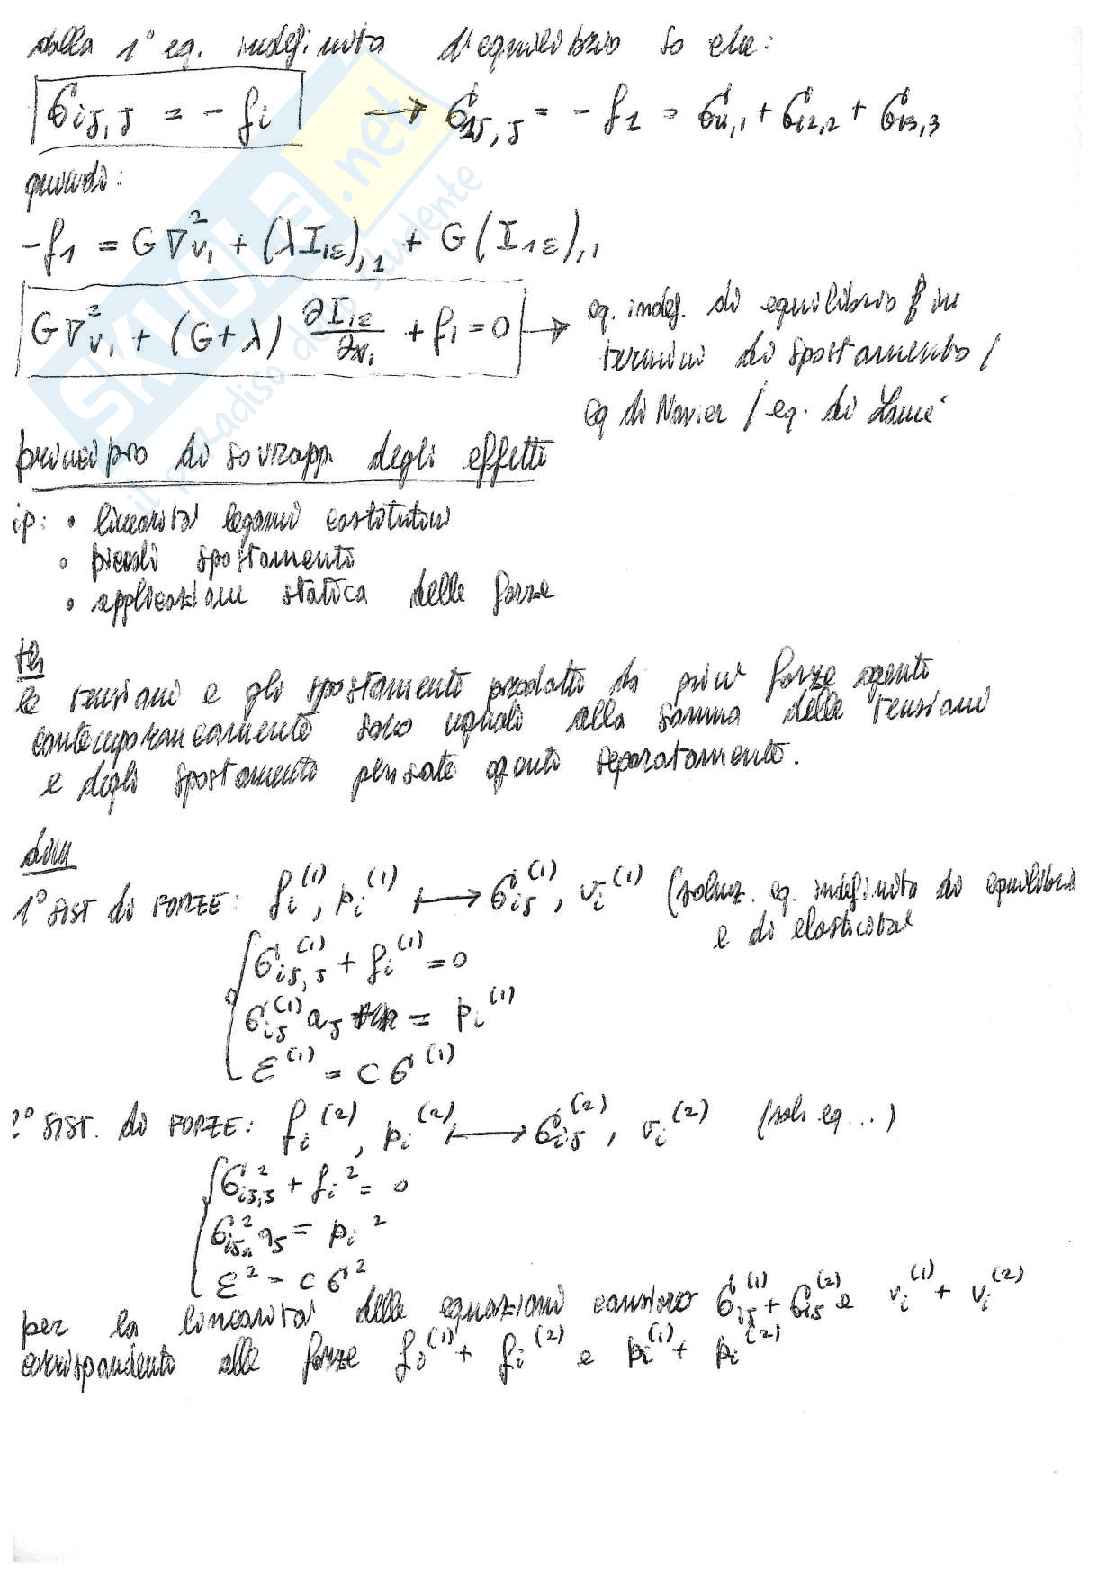 dalla 1° eq. indefinita d'equilibrio so che:
σij,j = - fi → σ1j,j = - f1 = σ11,1 + σ12,2 + σ13,3
quindi:
-f1 = G∇²v1 + (λI1ε),1 + G(I1ε),1
G∇²v1 + (G+λ) ∂I1ε/∂xi + f1 = 0 → eq. indef. di equilibrio in
termini di spostamento /
eq di Navier / eq. di Lamé
principio di sovrapp degli effetti
ip: • linearità legami costitutivi
• piccoli spostamenti
• applicazione statica delle forze
th
le tensioni e gli spostamenti prodotti da più forze agenti
contemporaneamente sono uguali alla somma delle tensioni
e degli spostamenti pensate agenti separatamente.
dim
1° SIST di FORZE: fi(1), pi(1) ↦ σij(1), vi(1) (soluz. eq. indefinita di equilibrio
e di elasticità
σij,j(1) + fi(1) = 0
σij(1) aj = pi(1)
ε(1) = C σ(1)
2° SIST. di FORZE: fi(2), pi(2) ↦ σij(2), vi(2) (sol. eq...)
σij,j² + fi² = 0
σij² aj = pi²
ε² = C σ²
per la linearità delle equazioni σij(1) + σij(2) e vi(1) + vi(2)
corrispondenti alle forze fi(1) + fi(2) e pi(1) + pi(2)
SKUOLA.net
il paradiso dello studente